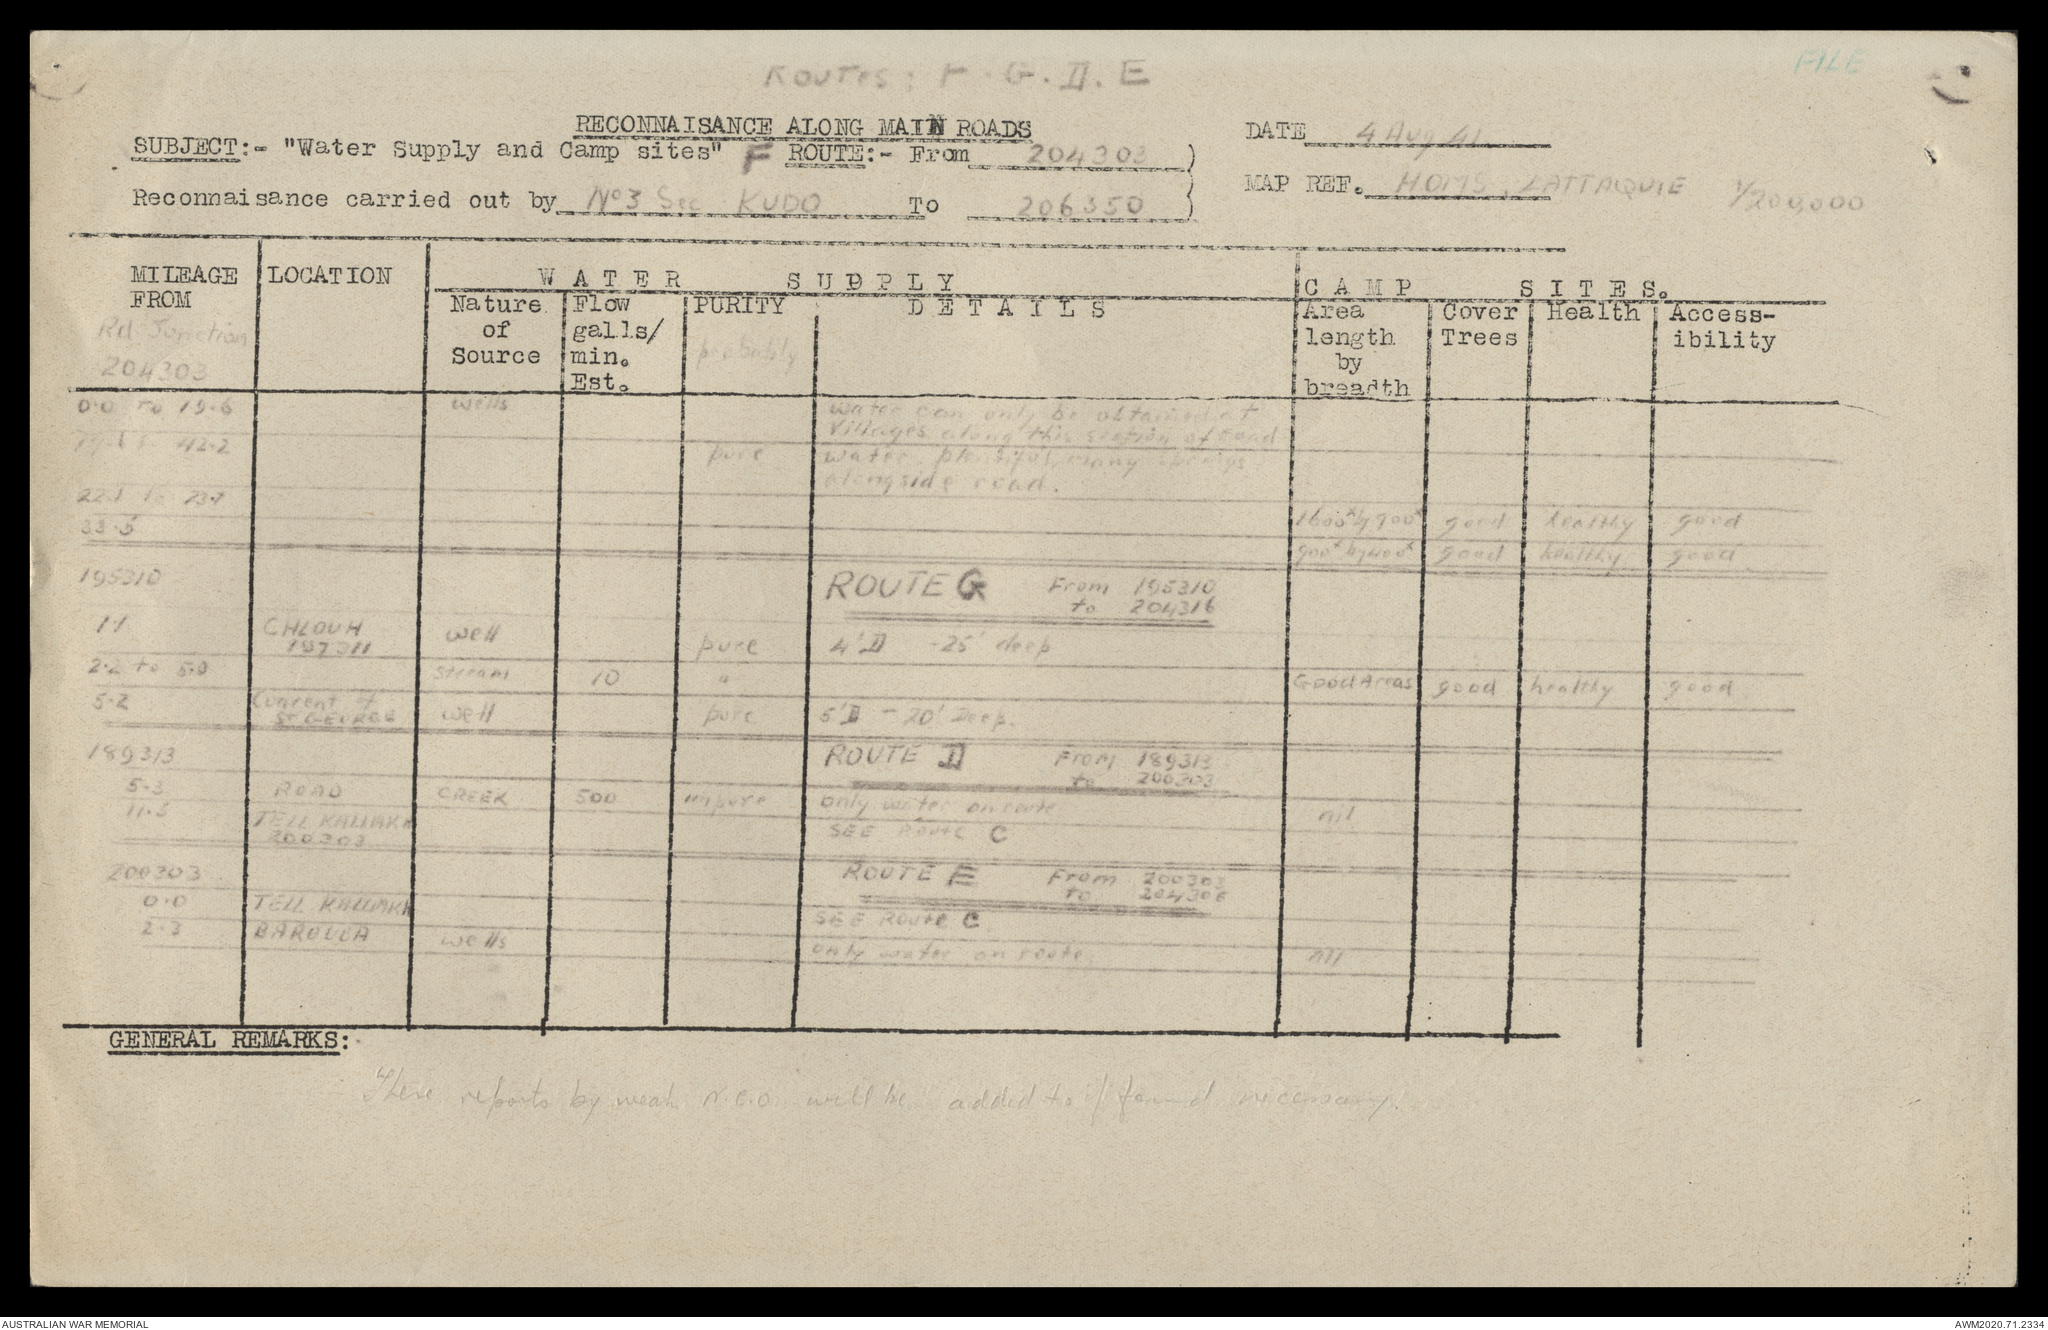 FILE
ROUTES: F. G. D. E
RECONNAISANCE ALONG MAIN ROADS
SUBJECT:- "Water Supply and Camp sites" F ROUTE:- From 204303)
DATE 4 Aug 41
Reconnaisance carried out by No 3 Sec KUDO To 206350)
MAP REF. HOMS, LATTAQUIE 1/200,000
MILEAGE FROM Rd Junction 204303
LOCATION
WATER SUPPLY
Nature of Source
Flow galls/min. Est.
PURITY probably
DETAILS
CAMP SITES.
Area length by breadth
Cover Trees
Health
Access-ibility
0.0 to 19.6 wells water can only be obtained at
villages along this section of road
42.2 pure water plentiful, many springs
alongside road.
22.1 to 23.7 1600x by 900x good healthy good
33.5 900x by 400x good healthy good
195310 ROUTE G From 195310
to 204316
1.1 CHLOUH well pure 4'D - 25' deep
197311
2.2 to 5.0 stream 10 " Good Areas good healthy good
5.2 Convent of well pure 5'D - 20' Deep.
ST GEORGE
189313 ROUTE D From 189313
to 200303
5.3 ROAD CREEK 500 impure only water on route nil
11.5 TELL KALLAKH SEE ROUTE C
200303
200303 ROUTE E From 200303
to 204306
0.0 TELL KALLAKH SEE ROUTE C
2.3 BAROUIA wells only water on route. nil
GENERAL REMARKS:
These reports by N.C.O. will be added to if found necessary.
AUSTRALIAN WAR MEMORIAL
AWM2020.71.2334